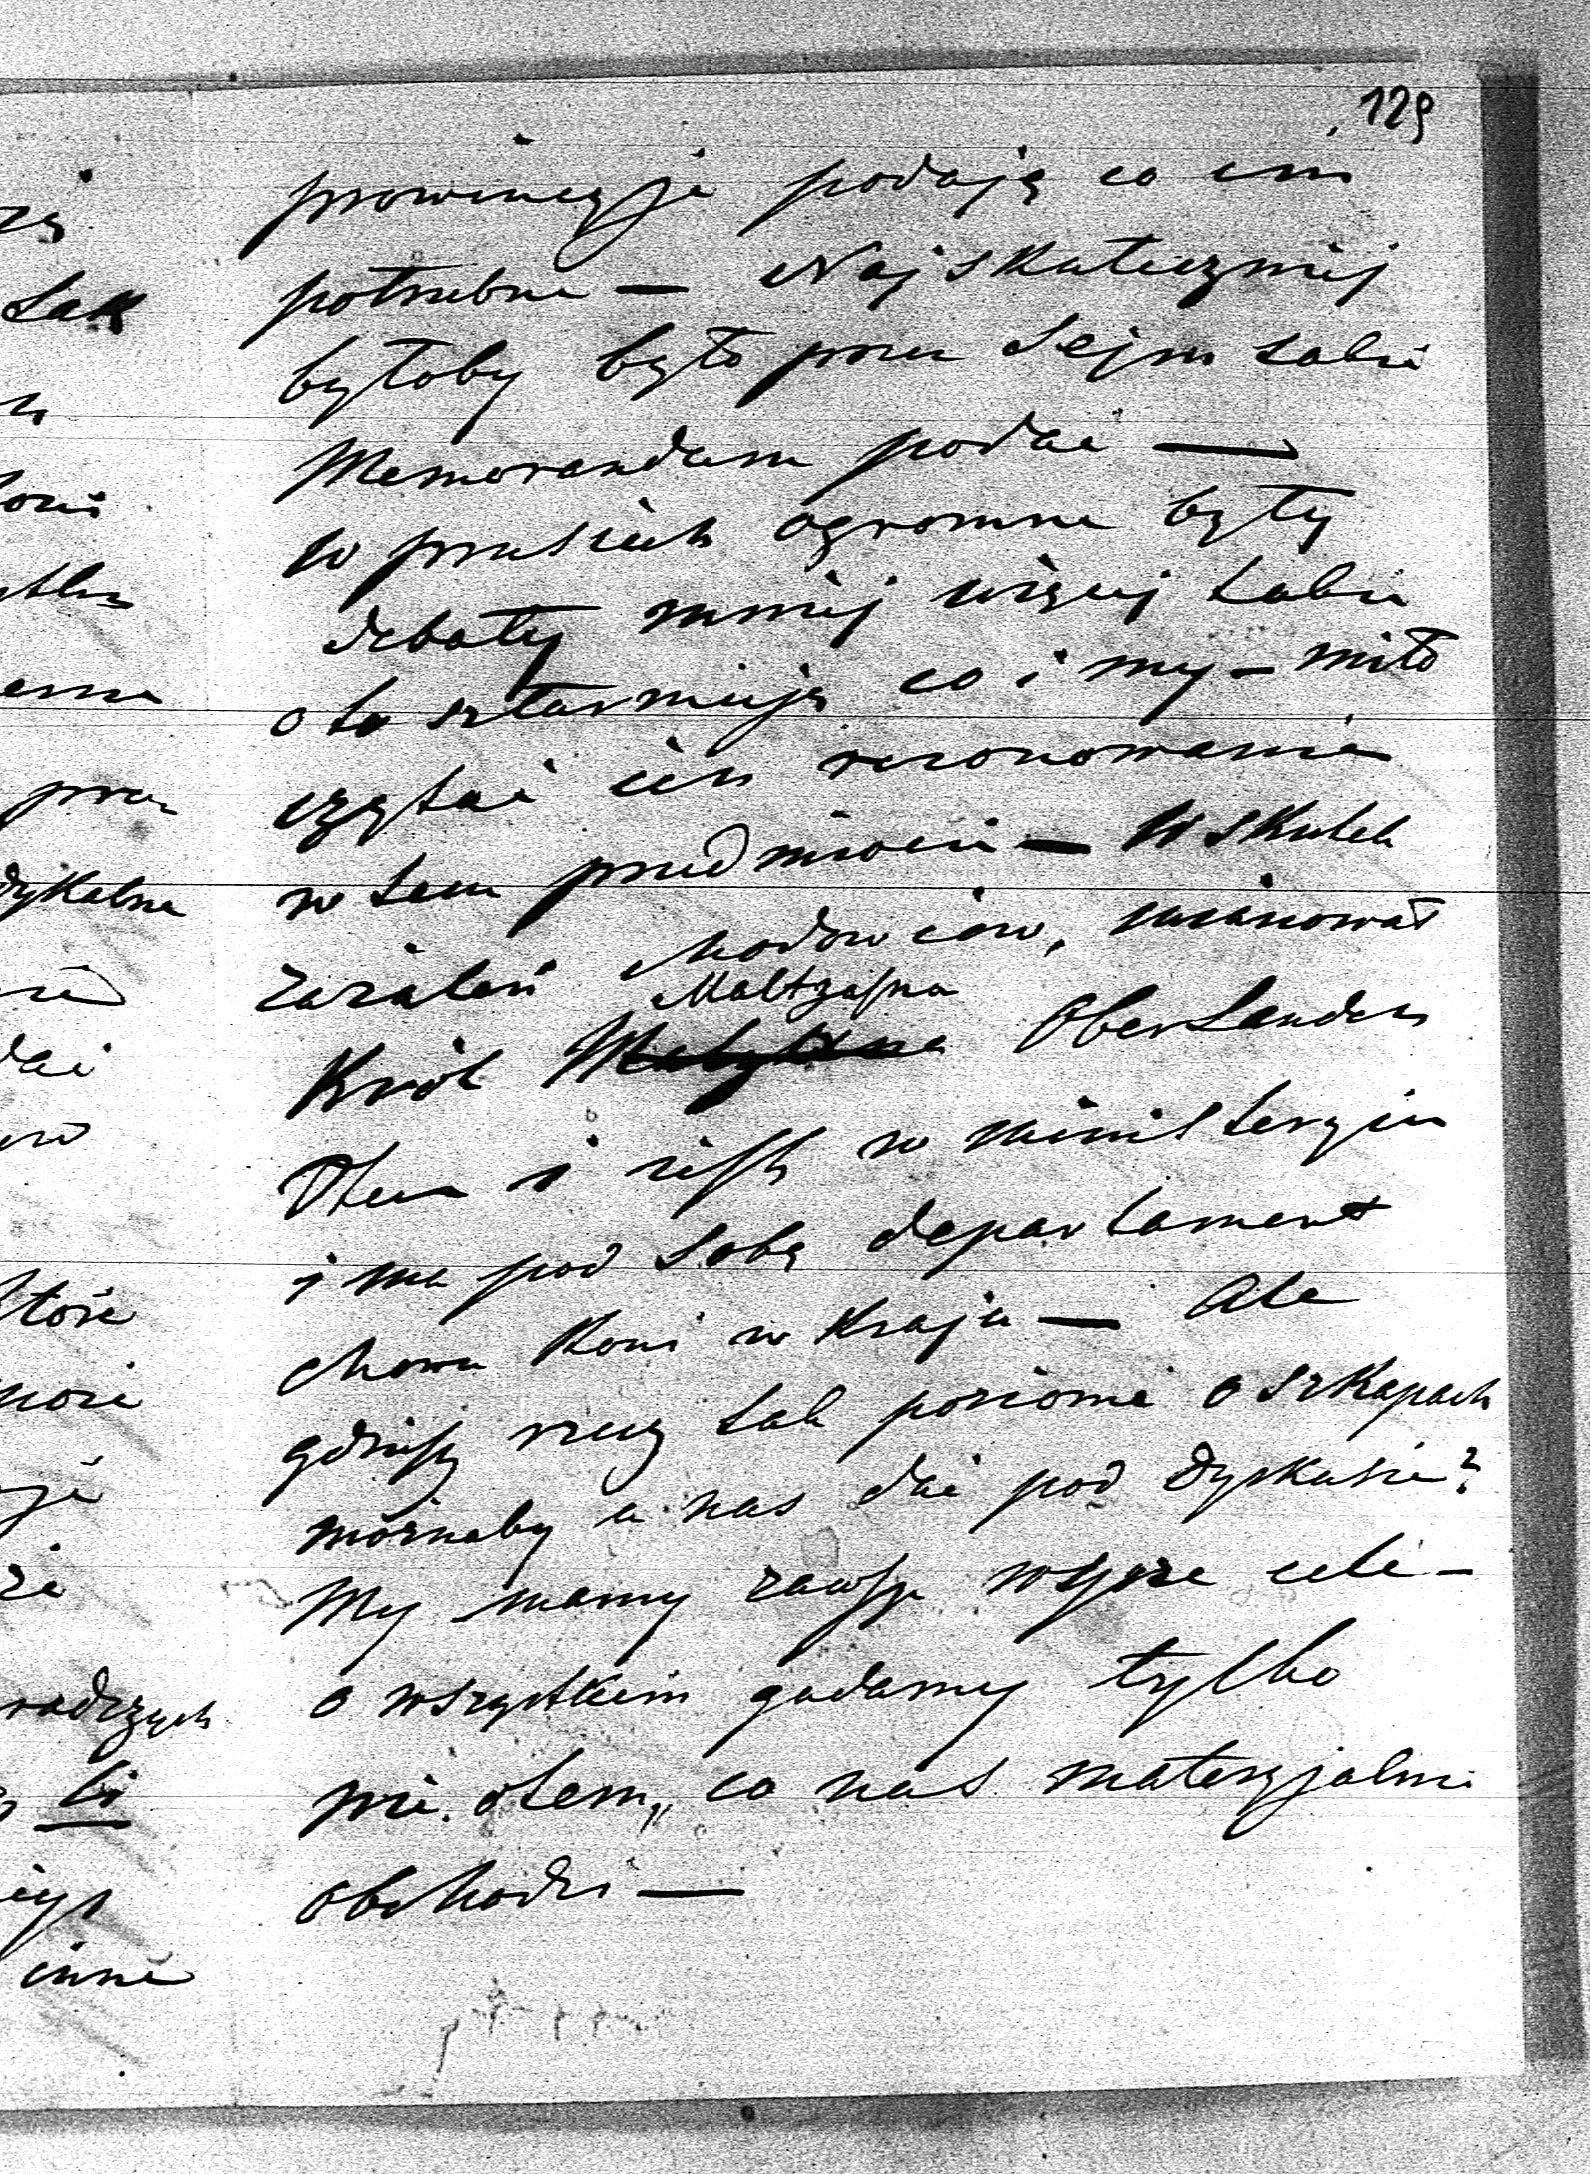 129
prowincyje podają co im
potrzebne — Najskuteczniej
byłoby było przez Sejm takie
Memorandum podać —
w prusiech ogromne były
debaty mniej więcej takie
o to szturmują co i my — miło
czytać ich rezonowanie
w tem przedmiocie — W skutek
zażaleń chodowców, mianował
Król Maltzahna OberLanden
Otem i jest w ministeryium
i ma pod sobą departament
chowu koni w kraju — Ale
gdzieby rzecz tak poziomé o szkapach
możnaby u nas dać pod dyskusie?
My mamy zawsze wyższe cele —
o wszystkiem gadamy tylko
nie otem, co nas materyjalnie
obchodzi —
tak
dykalne
które
może
radczych
inné